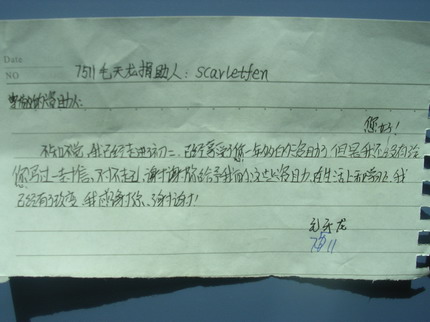 Date
NO
7511毛天龙捐助人: scarletfen
尊敬的资助人:
您好!
不知不觉,我已经走进初二,已经享受了您一年的帮助,但是我还没有给
您写过一封信,对不起,谢谢您给予我的这些帮助,在生活上和学习上,我
已经有了改变,我感谢您,谢谢!
毛天龙
7511